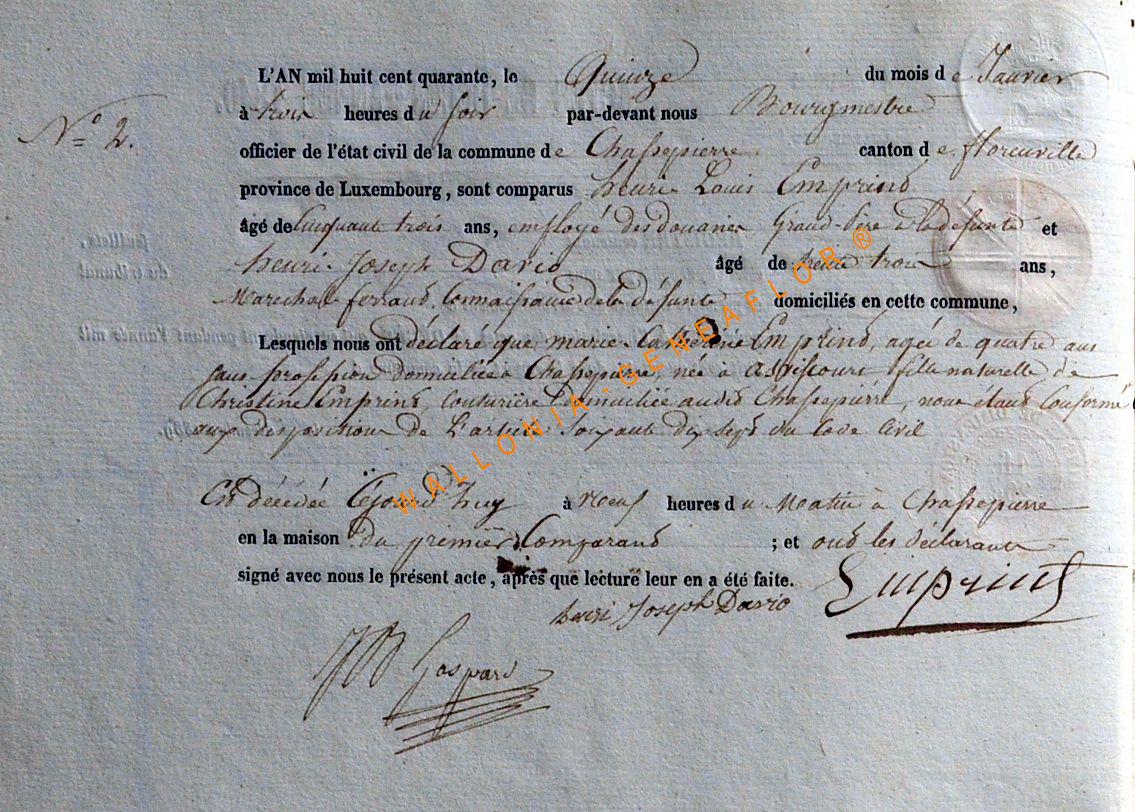 L'AN mil huit cent quarante, le Quinze du mois de Janvier
N° 2. à trois heures du soir par-devant nous Bourgmestre
officier de l'état civil de la commune de Chassepierre canton de florenville
province de Luxembourg, sont comparus henri Louis Emprind
âgé de Cinquante trois ans, employé des douanes Grand-Père à la défunte et
henri Joseph Davio âgé de trente trois ans,
Marechal ferrand, Connaissance de la défunte domiciliés en cette commune,
Lesquels nous ont déclaré que marie Catherine Emprind, agée de quatre ans
sans profession domiciliée à Chassepierre, née à fille naturelle de
Christine Emprind, couturière domiciliée audit Chassepierre, nous étant Conformé
aux dispositions de L'article Soixante dix sept du Code Civil
Est décédée à neuf heures du Matin à Chassepierre
en la maison du premier Comparand ; et ont les déclarants
signé avec nous le présent acte, après que lecture leur en a été faite.
henri Joseph Davio Emprint
JB Gaspard
WALLONIA-GENEAFLOR ®